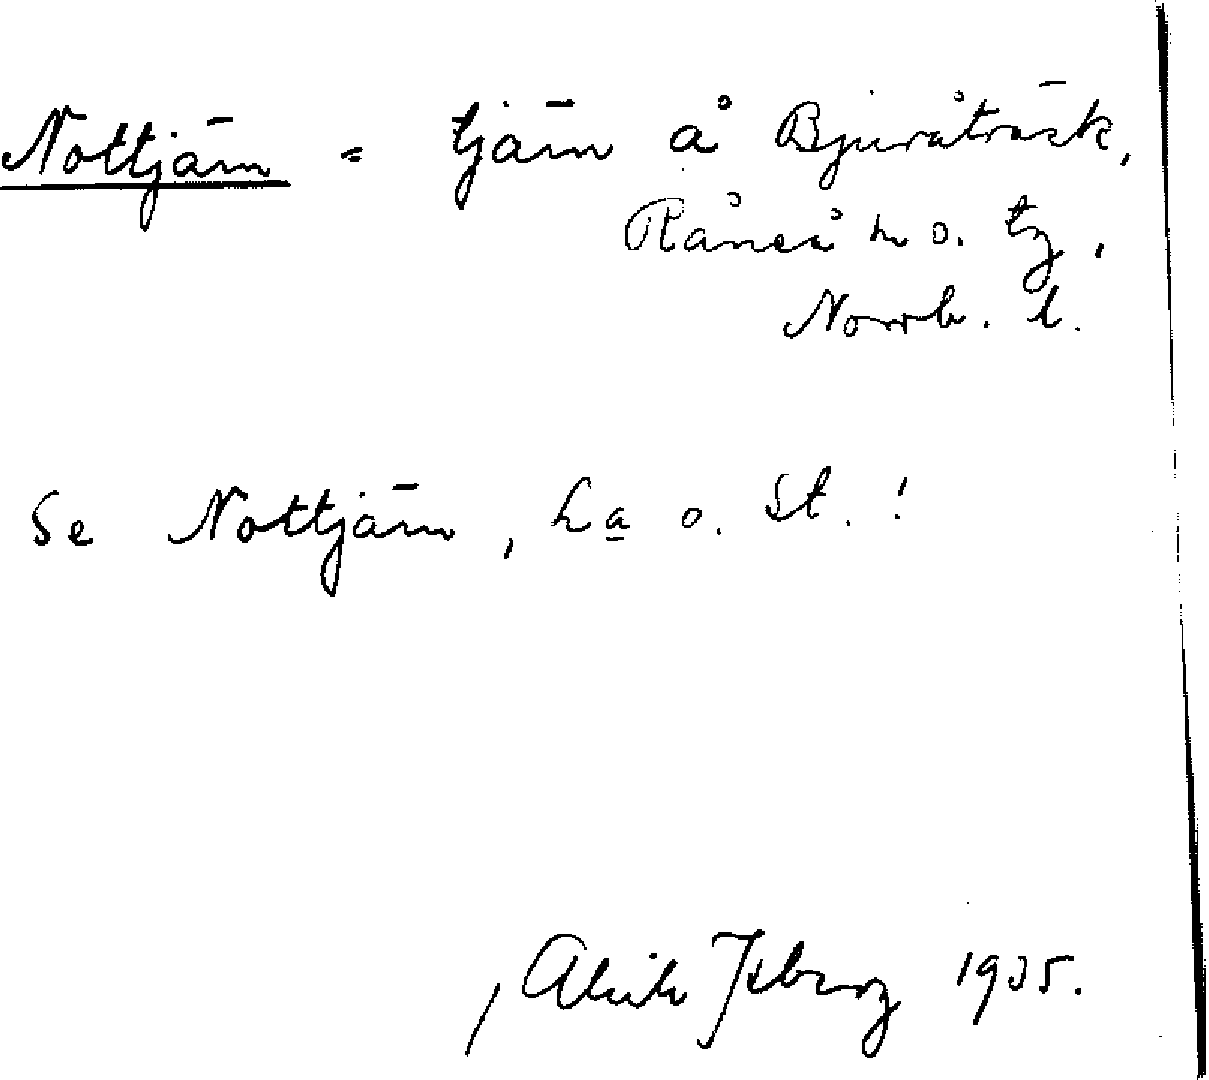 Nottjärn = tjärn å Bjuråträsk,
Råneå sn o. tg,
Norrb. l.
Se Nottjärn, La o. St. !
Alrik Isberg 1935.